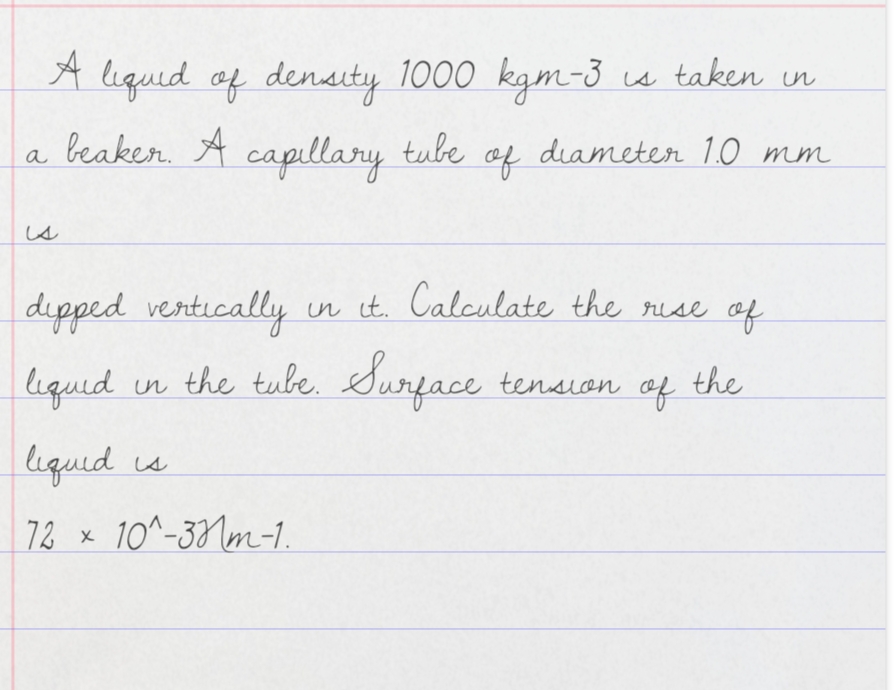 A liquid of density 1000 kgm-3 is taken in
a beaker. A capillary tube of diameter 1.0 mm
is
dipped vertically in it. Calculate the rise of
liquid in the tube. Surface tension of the
liquid is
72 × 10^-3Nm-1.